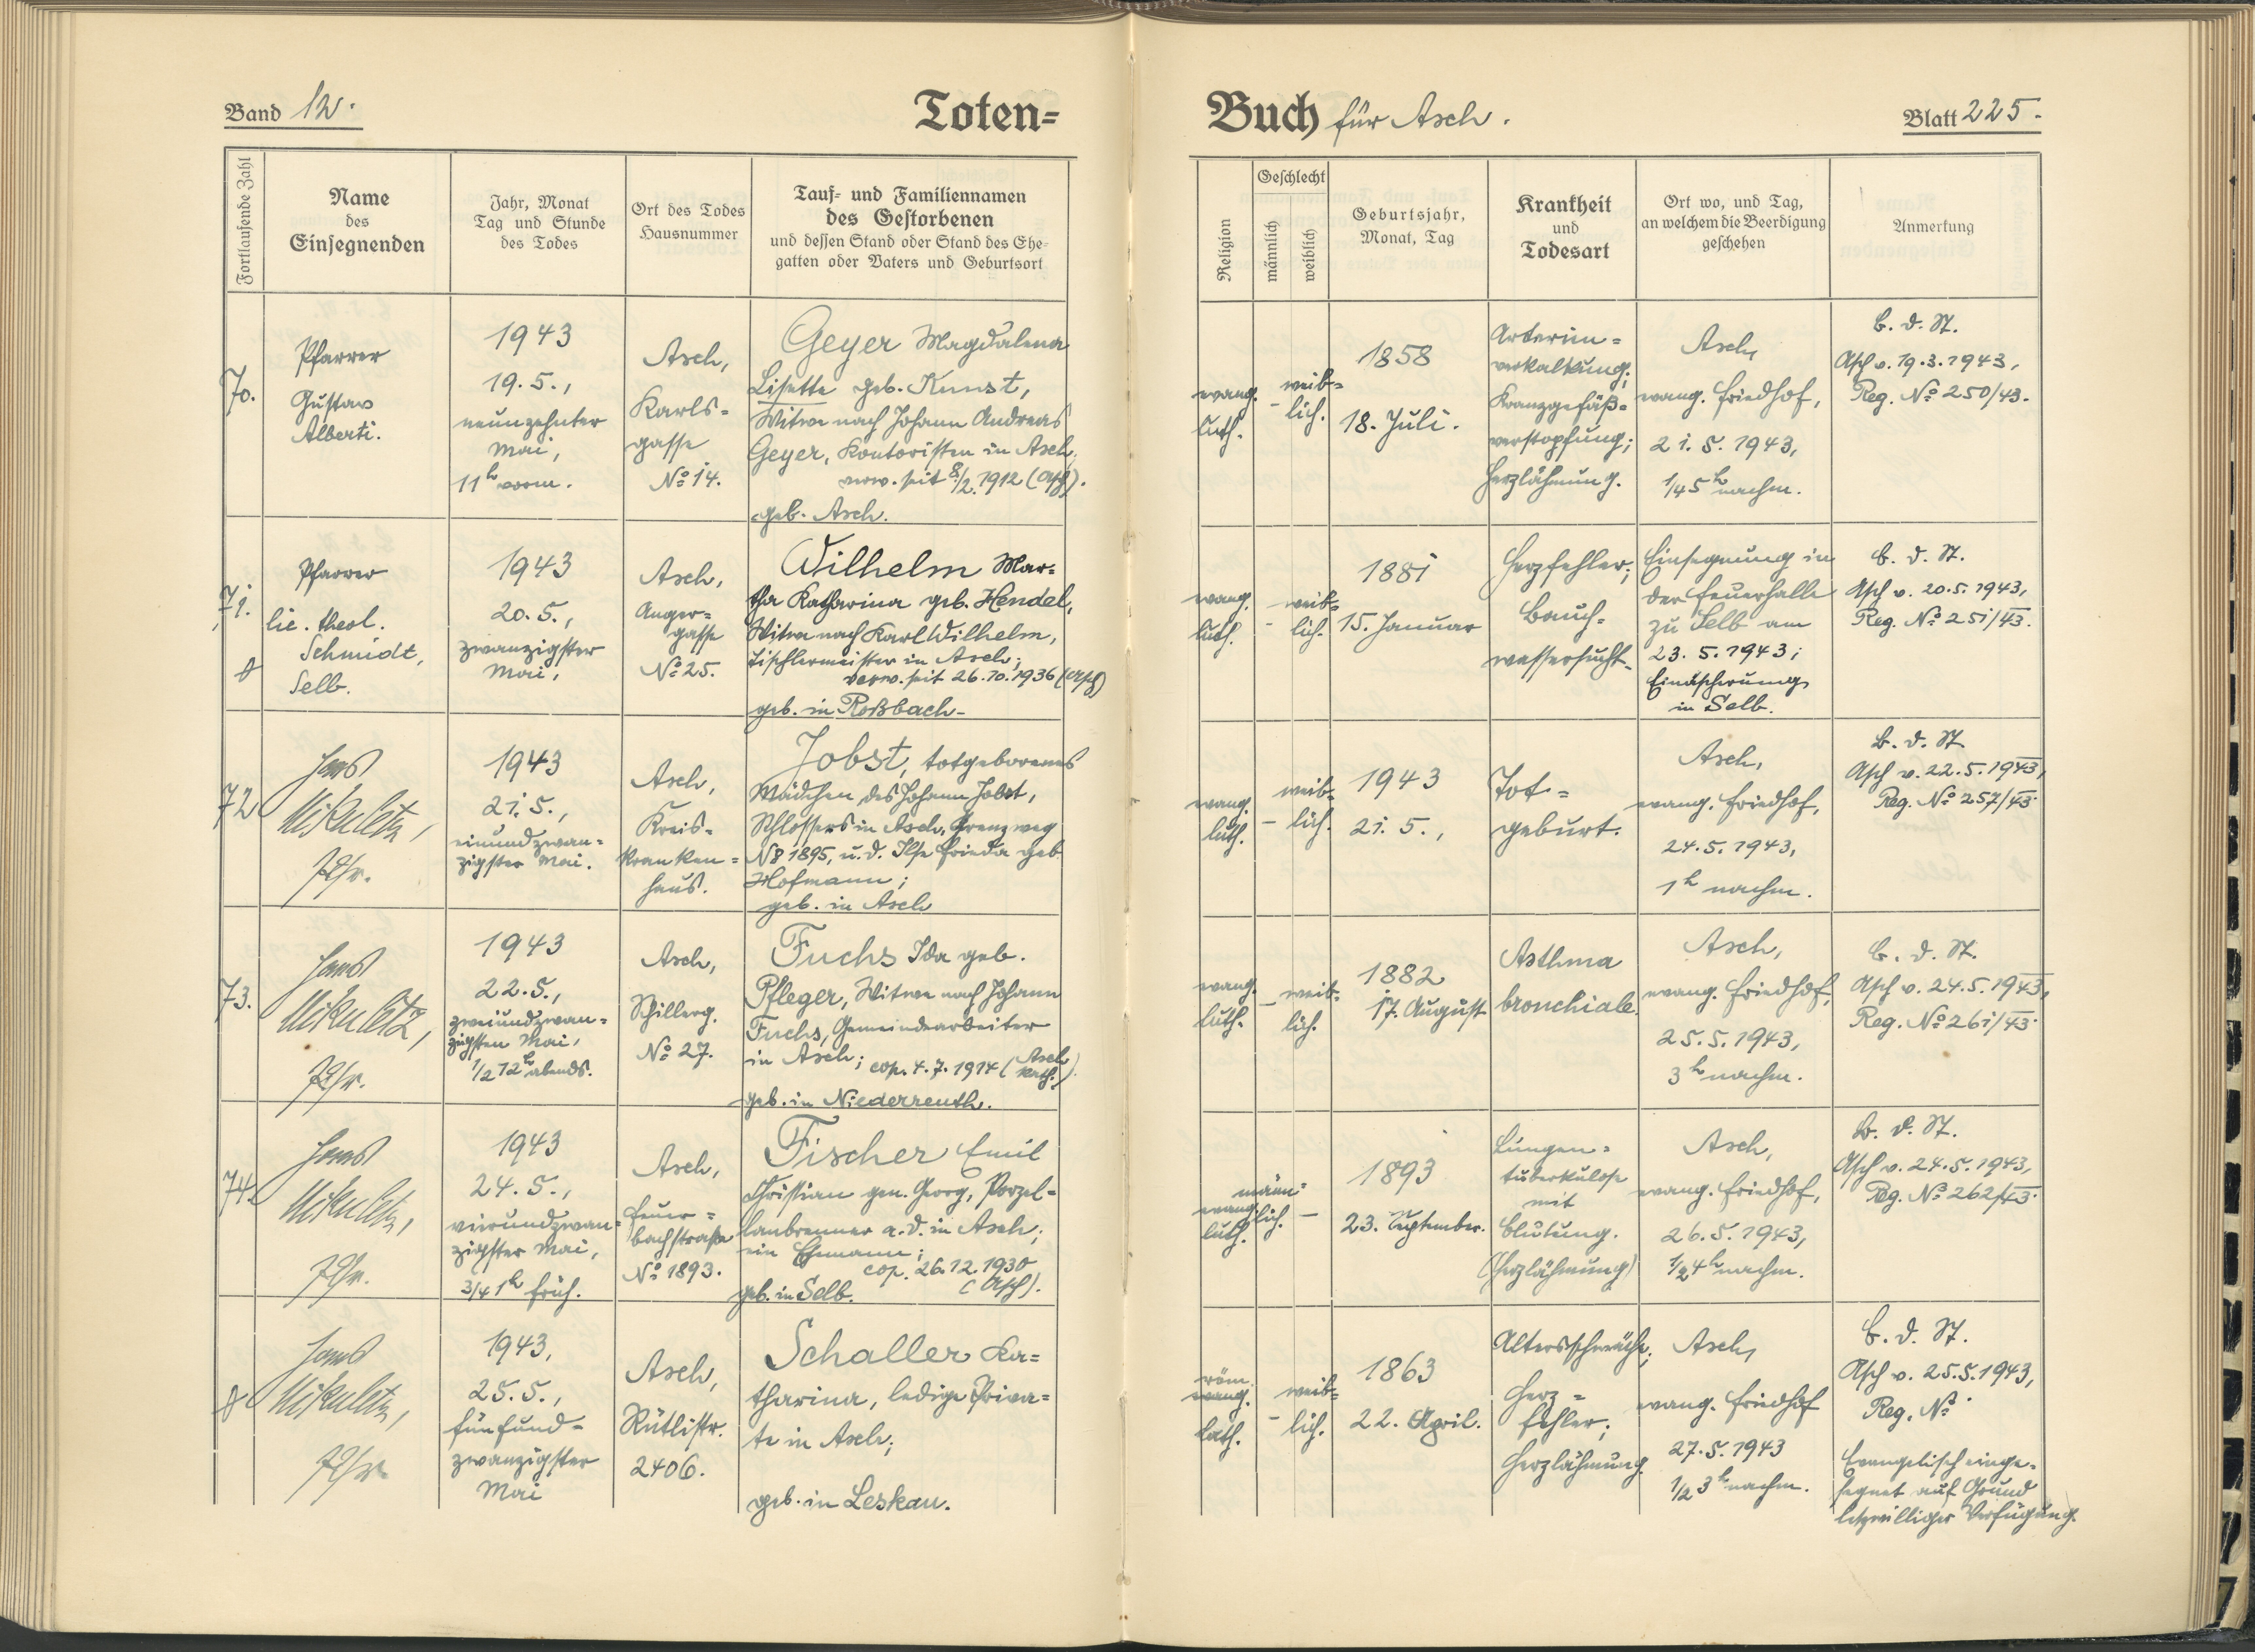 Band 12.
Toten=
Buch für Asch.
Blatt 225.
Fortlaufende Zahl
Name
des
Einsegnenden
Jahr, Monat
Tag und Stunde
des Todes
Ort des Todes
Hausnummer
Tauf- und Familiennamen
des Gestorbenen
und dessen Stand oder Stand des Ehe-
gatten oder Vaters und Geburtsort
Religion
Geschlecht
männlich
weiblich
Geburtsjahr,
Monat, Tag
Krankheit
und
Todesart
Ort wo, und Tag,
an welchem die Beerdigung
geschehen
Anmerkung
70.
Pfarrer
Gustav
Alberti.
1943
19. 5.,
neunzehnter
Mai,
11h vorm.
Asch,
Karls=
gasse
No 14.
Geyer Magdalena
Lisette geb. Künst,
Witwe nach Johann Andreas
Geyer, Kontoristen in Asch;
verw. seit 8./2. 1912 (Asch).
geb. Asch.
evang.
luth.
-
weib=
lich.
1858
18. Juli.
Arterien=
verkalkung;
Kranzgefäß=
verstopfung;
Herzlähmung.
Asch,
evang. Friedhof,
21. 5. 1943,
1/45h nachm.
B. d. St.
Asch v. 19.3.1943,
Reg. No 250/43.
71.
Pfarrer
lic. theol.
Schmidt,
Selb.
1943
20. 5.,
zwanzigster
Mai,
Asch,
Anger=
gasse
No 25.
Wilhelm Mar=
tha Katharina geb. Hendel,
Witwe nach Karl Wilhelm,
Tischlermeister in Asch;
verw. seit 26.10.1936 (Asch)
geb. in Roßbach.
evang.
luth.
-
weib=
lich.
1881
15. Januar
Herzfehler;
Bauch=
wassersucht.
Einsegnung in
der Feuerhalle
zu Selb am
23. 5. 1943;
Einäscherung
in Selb.
B. d. St.
Asch v. 20.5.1943,
Reg. No 251/43.
72
Hans
Mikuletz,
Pfr.
1943
21. 5.,
einundzwan=
zigster Mai.
Asch,
Kreis=
kranken=
haus.
Jobst, totgeborenes
Mädchen des Johann Jobst,
Schlossers in Asch, Grenzweg
No 1895, u. d. Ilse Frieda geb
Hofmann;
geb. in Asch
evang.
luth.
-
weib=
lich.
1943
21. 5.,
Tot=
geburt.
Asch,
evang. Friedhof,
24. 5. 1943,
1h nachm.
B. d. St.
Asch v. 22.5.1943,
Reg. No 257/43.
73.
Hans
Mikuletz,
Pfr.
1943
22. 5.,
zweiundzwan=
zigsten Mai,
1/2 12h abends.
Asch,
Schillerg.
No 27.
Fuchs Ida geb.
Pfleger, Witwe nach Johann
Fuchs, Gemeindearbeiter
in Asch; cop. 4. 7. 1914 (Asch
kath.)
geb. in Niederreuth.
evang.
luth.
-
weib=
lich.
1882
17. August
Asthma
bronchiale.
Asch,
evang. Friedhof,
25. 5. 1943,
3h nachm.
B. d. St.
Asch v. 24.5.1943,
Reg. No 261/43.
74.
Hans
Mikuletz,
Pfr.
1943
24. 5.,
vierundzwan=
zigster Mai,
3/4 1h früh.
Asch,
Feuer=
bachstraße
No 1893.
Fischer Emil
Christian gen. Georg, Porzel=
lanbrenner a. D. in Asch;
ein Ehemann;
cop. 26.12.1930
(Asch).
geb. in Selb.
evang.
luth.
männ=
lich.
-
1893
23. September.
Lungen=
tuberkulose
mit
Blutung.
(Herzlähmung)
Asch,
evang. Friedhof,
26. 5. 1943,
1/2 4h nachm.
B. d. St.
Asch v. 24.5.1943,
Reg. No 262/43.
Hans
Mikuletz,
Pfr.
1943,
25. 5.,
fünfund=
zwanzigster
Mai
Asch,
Rütlistr.
2406.
Schaller Ka=
tharina, ledige Priva=
te in Asch;
geb. in Leskau.
röm.
evang.
kath.
-
weib=
lich.
1863
22. April.
Altersschwäche;
Herz=
fehler;
Herzlähmung.
Asch,
evang. Friedhof
27. 5. 1943
1/2 3h nachm.
B. d. St.
Asch v. 25.5.1943,
Reg. No
Evangelisch einge=
segnet auf Grund
letzwilliger Verfügung.